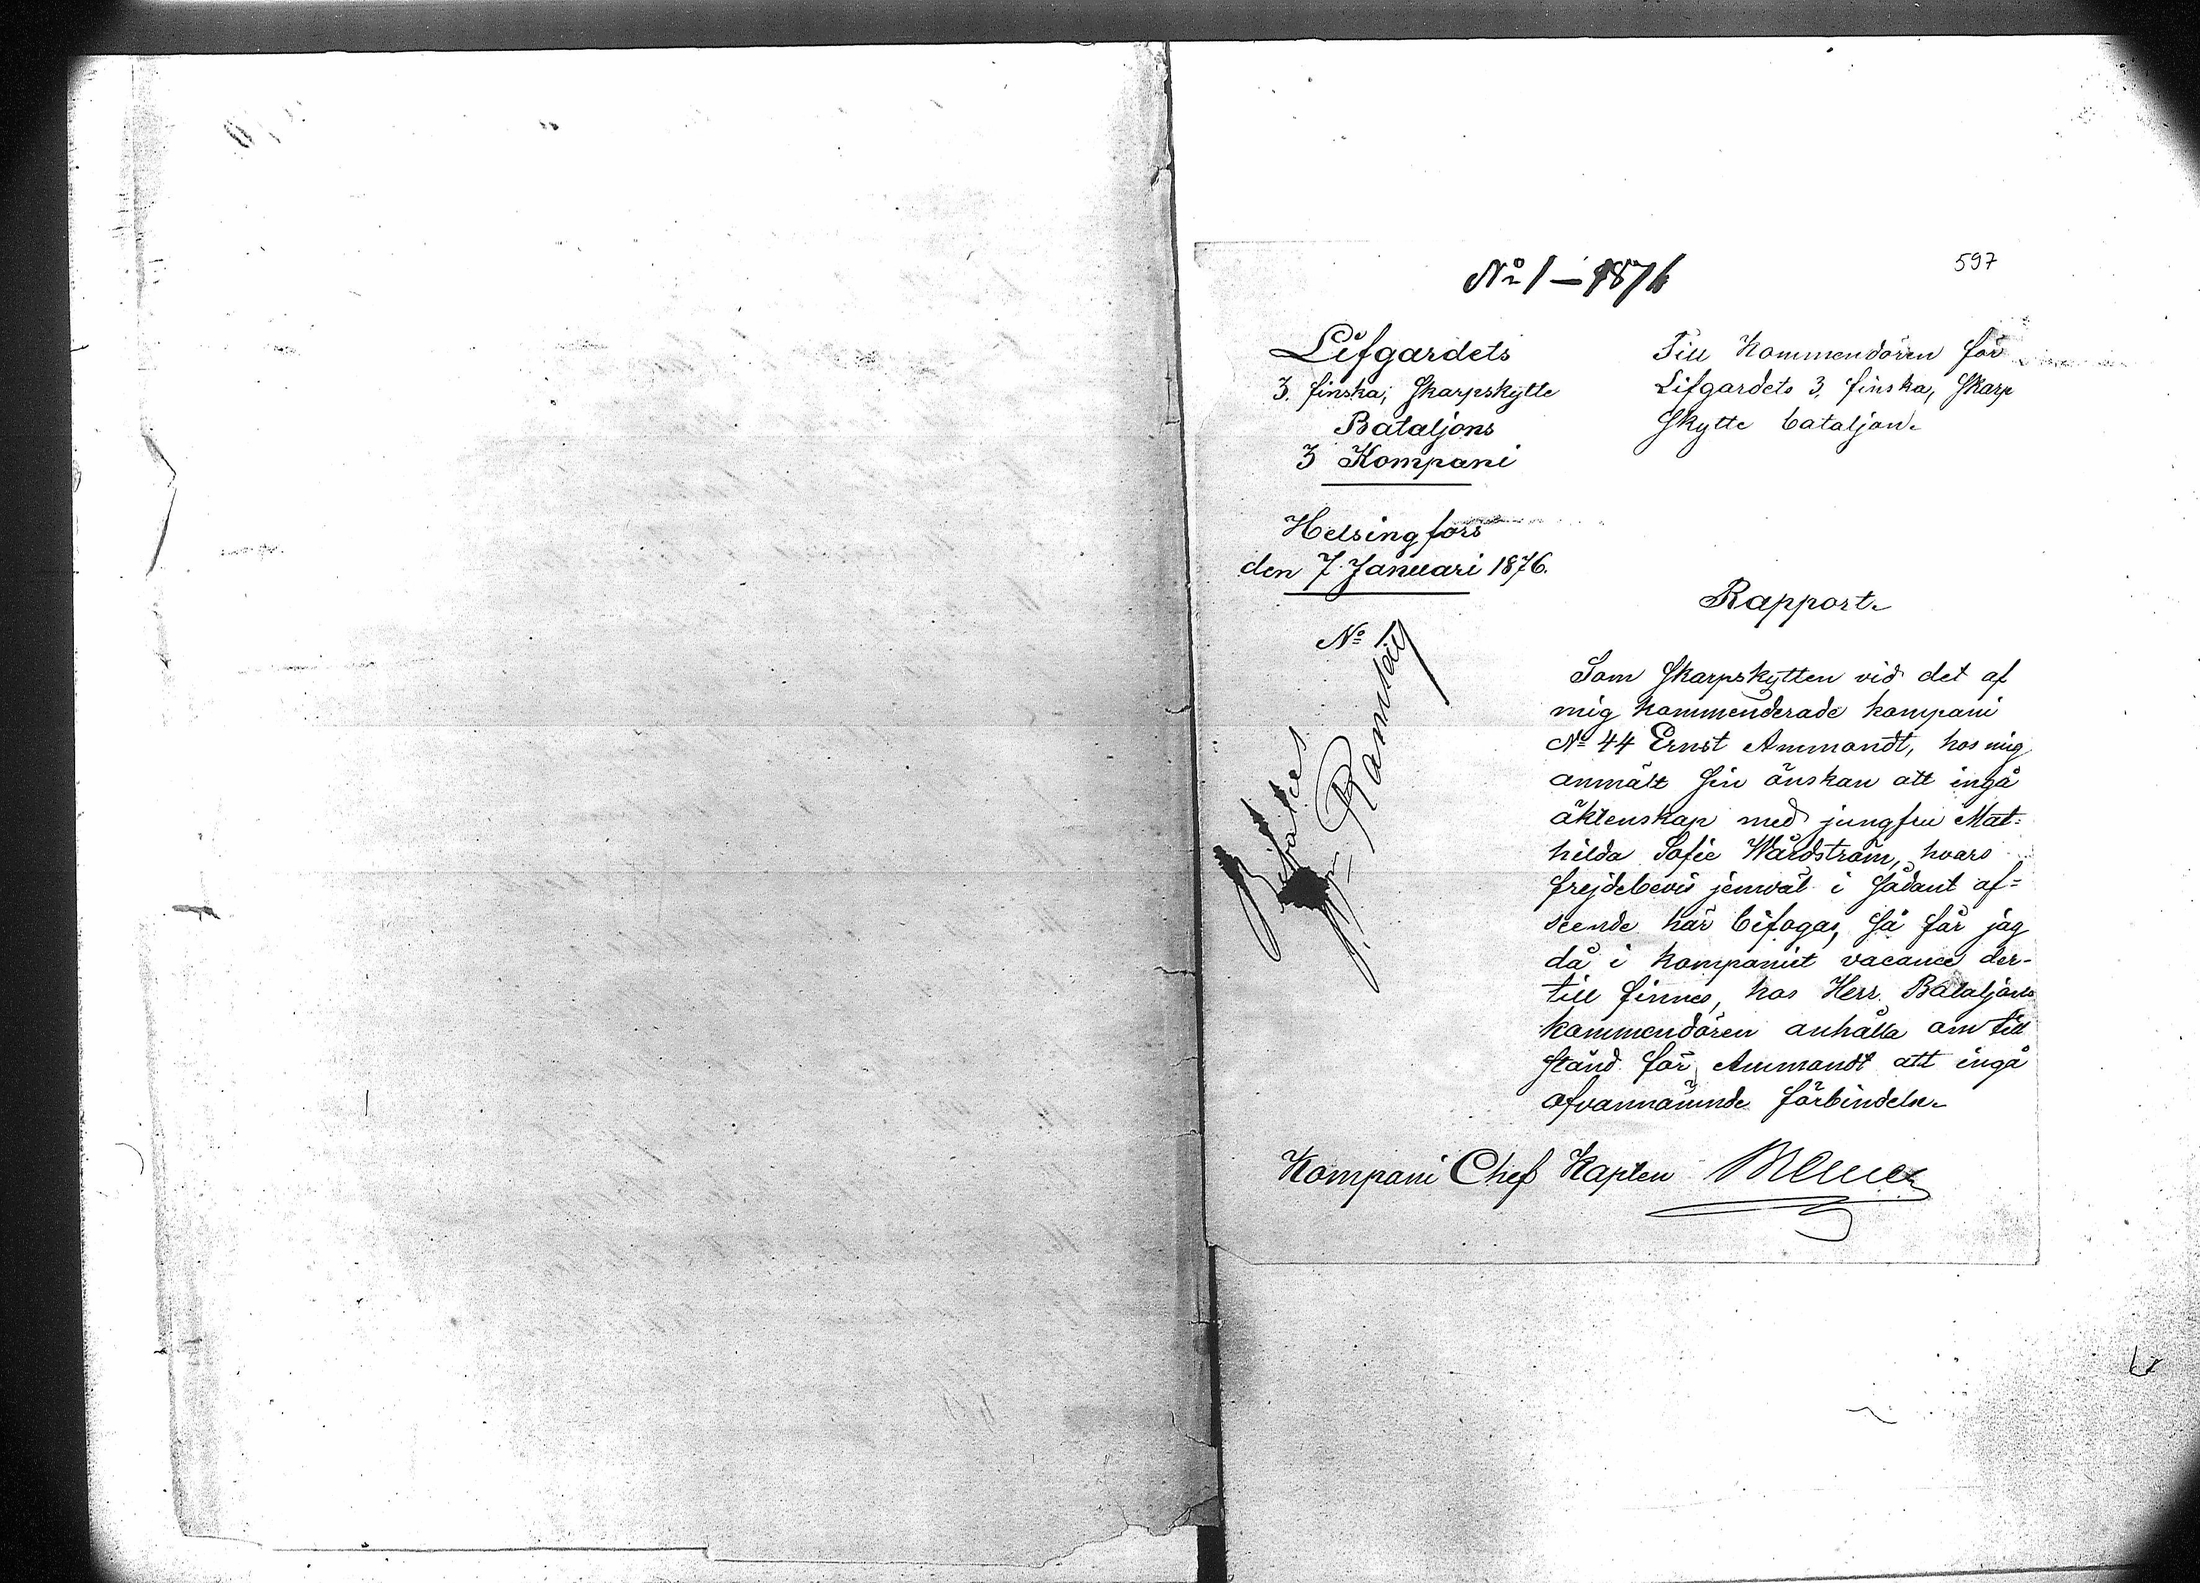 № 1 — 1876
597
Lifgardets
3. finska, Skarpskytte
Bataljons
3 Kompani
Helsingfors
den 7. Januari 1876.
№ 1
Till Kommendören för
Lifgardets 3. finska, Skarp
Skytte bataljon.
Rapport.
Som Skarpskytten vid det af
mig kommenderade kompani
№ 44 Ernst Ammondt, hos mig
anmält sin önskan att ingå
äktenskap med jungfru Mat-
hilda Sofie Wårdström, hvars
frejdebevis jemväl i sådant af-
seende här bifogas, så får jag
då i kompaniet vacance der-
till finnes, hos Herr Bataljons
kommendören anhålla om till
stånd för Ammondt att ingå
ofvannämnde förbindelse.
Kompani Chef Kapten
Bifalles
Ramsay